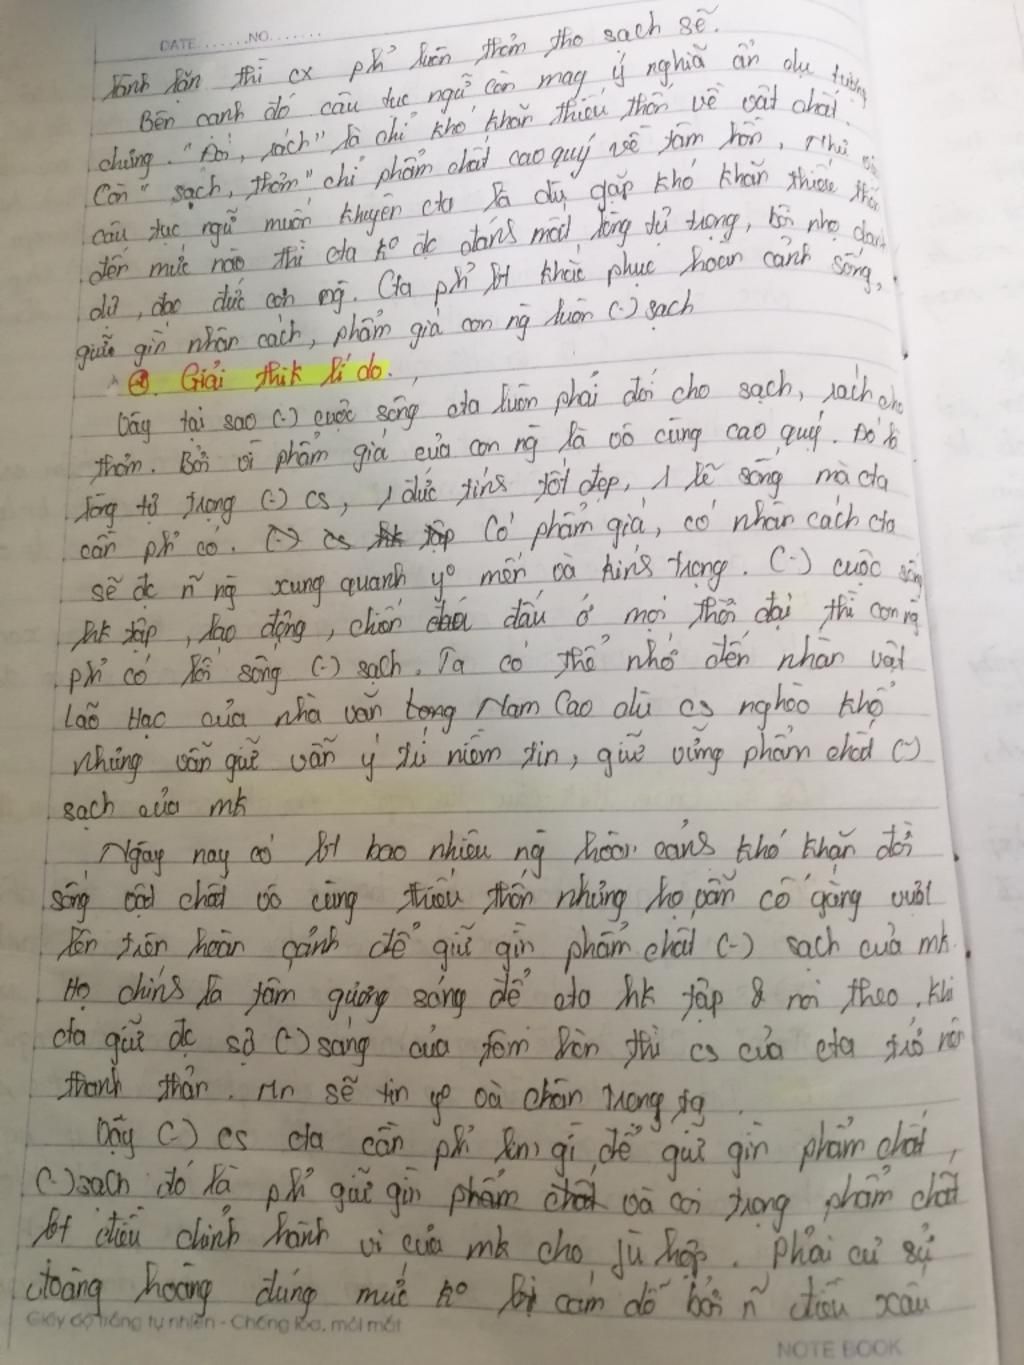 DATE.......NO.......
lành lặn thì cx phỉ luôn thơm tho sạch sẽ.
Bên cạnh đó câu tục ngữ còn mag ý nghiã ẩn dụ tượng
chứng. "Đói, rách" là chỉ khó khăn thiếu thốn về vật chất.
Còn "sạch, thơm" chỉ phẩm chất cao quý về tâm hồn, Như
câu tục ngữ muốn khuyên cta là dù gặp khó khăn thiếu thốn
đến mức nào thì cta ko đc đánh mất lòng tự trọng, bôi nhọ danh
dự, đạo đức con ng. Cta phỉ bt khắc phục hoàn cảnh sống,
giữ gìn nhân cách, phẩm giá con ng luôn (-) sạch
Giải thik lí do.
Vậy tại sao (-) cuộc sống cta luôn phải đói cho sạch, rách cho
thơm. Bởi vì phẩm giá của con ng là vô cùng cao quý. Đó là
lòng tự trọng (-) cs, 1 đức tính tốt đẹp, 1 lẽ sống mà cta
cần phỉ có. (-) cs hk tập Có phẩm giá, có nhân cách cta
sẽ đc ñ ng xung quanh yo mến và kính trọng. (-) cuộc sống
hk tập, lao động, chiến đấu ở mọi thời đại thì con ng
phỉ có lối sống (-) sạch. Ta có thể nhớ đến nhân vật
Lão Hạc của nhà văn tong Nam Cao dù cs nghèo khổ
nhưng vẫn giữ vẫn ý tứ niềm tin, giữ vững phẩm chất (-)
sạch của mk
Ngày nay có bt bao nhiêu ng hoàn cảnh khó khăn đời
sống vật chất vô cùng thiếu thốn nhưng họ vẫn cố gắng vượt
lên trên hoàn cảnh để giữ gìn phẩm chất (-) sạch của mk.
Họ chính là tấm gương sáng để cta hk tập & noi theo. khi
cta giữ đc sự (-) sáng của tâm hồn thì cs của cta trở nên
thanh thản. Mn sẽ tin yo và chân trọng ta
Vậy (-) cs cta cần phỉ lm gì để giữ gìn phẩm chất,
(-) sạch đó là phỉ giữ gìn phẩm chất và coi trọng phẩm chất
bt điều chỉnh hành vi của mk cho fù hợp. Phải cư sử
đoàng hoàng đúng mức ko bị cám dỗ bởi ñ điều xấu
Giấy độ trắng tự nhiên - Chống lóa, mỏi mắt
NOTE BOOK